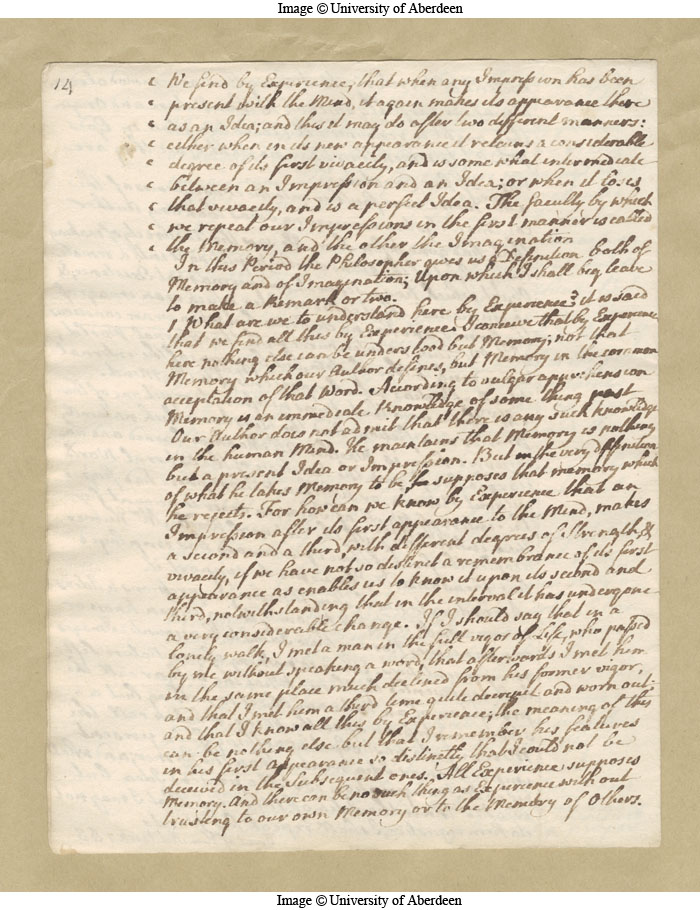 Image © University of Aberdeen
14
‘ We find by Experience, that when any Impression has been
‘ present with the Mind, it again makes its appearance there
‘ as an Idea; and this it may do after two different manners:
‘ either when in its new appearance it retains a considerable
‘ degree of its first vivacity, and is somewhat intermediate
‘ between an Impression and an Idea; or when it loses
‘ that vivacity, and is a perfect Idea. The faculty by which
‘ we repeat our Impressions in the first manner is called
‘ the Memory, and the other the Imagination
In this Period the Philosopher gives us a Definition both of
Memory and of Imagination; Upon which I shall beg leave
to make a Remark or two.
1 What are we to understand here by Experience? it is said
that we find all this by Experience. I conceive that by Experience
here nothing else can be understood but Memory; not that
Memory which our Author defines, but Memory in the common
acceptation of that Word. According to vulgar apprehension
Memory is an immediate Knowledge of some thing past
Our Author does not admit that there is any such knowledge
in the human Mind. He maintains that Memory is nothing
but a present Idea or Impression. But in the very definition
of what he takes Memory to be he supposes that memory which
he rejects. For how can we know by Experience that an
Impression after its first appearance to the Mind, makes
a second and a third, with different degrees of Strength &
vivacity, if we have not so distinct a remembrance of its first
appearance as enables us to know it upon its second and
third, notwithstanding that in the interval it has undergone
a very considerable change. If I should say that in a
lonely walk, I met a man in the full vigor of Life, who passed
by me without speaking a word, that afterwards I met him
in the same place much declined from his former vigor,
and that I met him a third time quite decrepit and worn out:
and that I know all this by Experience; the meaning of this
can be nothing else but that I remember his features
in his first appearance so distinctly that I could not be
deceived in the Subsequent ones. All Experience supposes
Memory. And there can be no such thing as Experience without
trusting to our own Memory or to the Memory of Others.
Image © University of Aberdeen